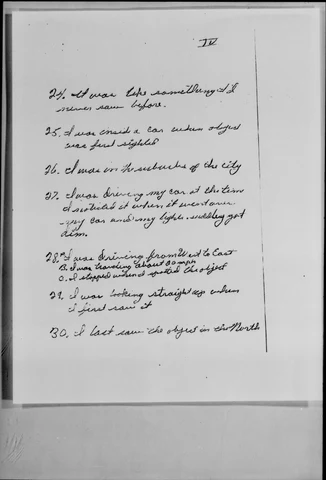 IV
24. It was like something I
never saw before.
25. I was inside a car when object
was first sighted
26. I was in the suburbs of the city
27. I was driving my car at the time
I noticed it when it went over
my car and my lights suddenly got
dim.
28. A. I was driving from West to East
B. I was traveling about 50 mph
C. I stopped when I spotted the object
29. I was looking straight up when
I first saw it
30. I last saw the object in the North